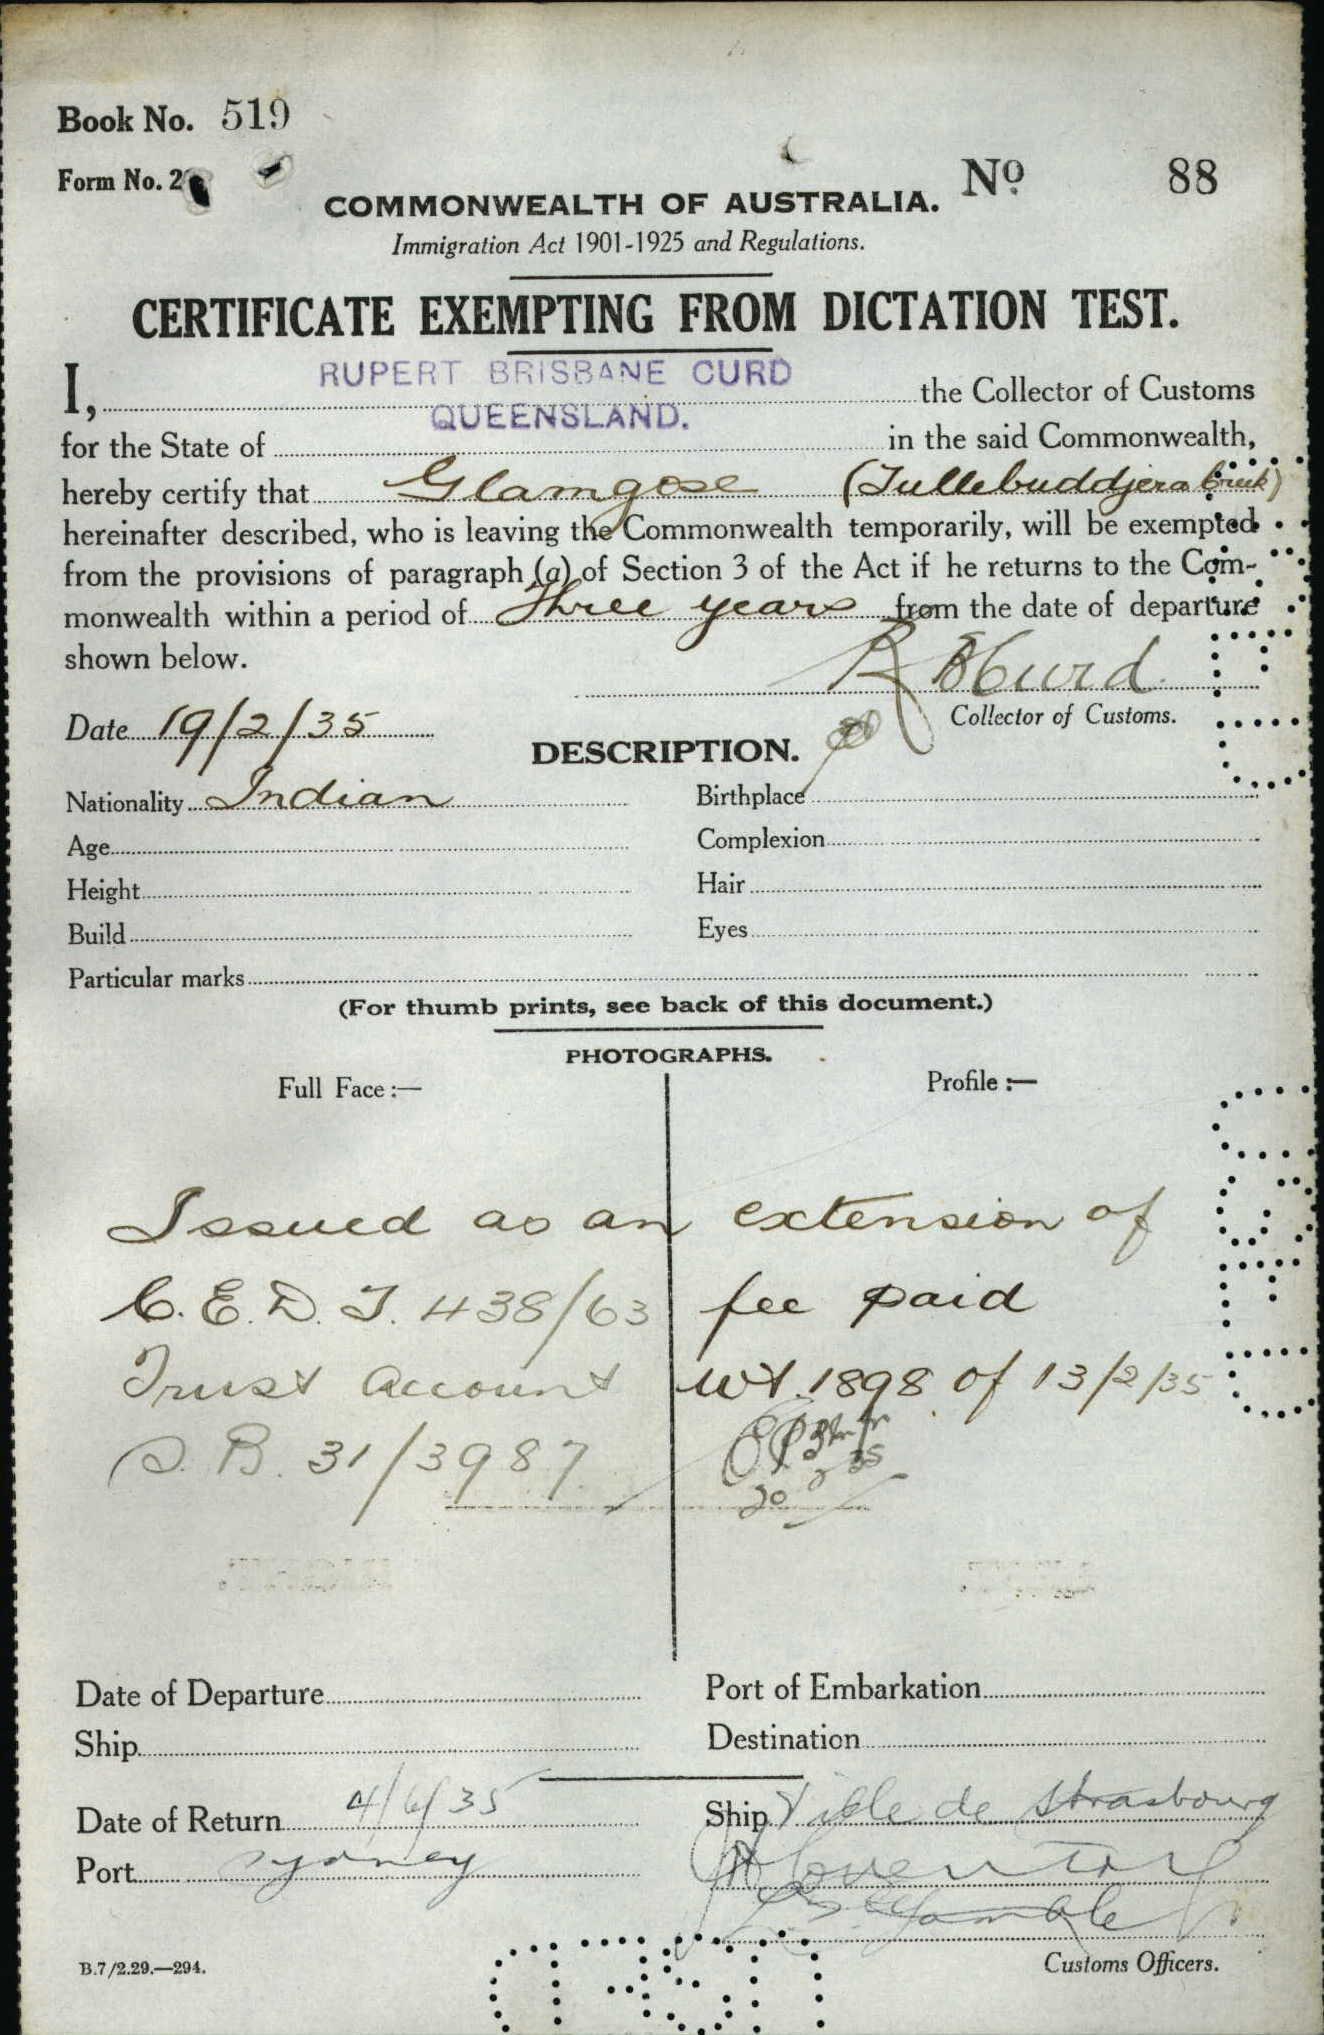 Book No. 519
Form No. 2
COMMONWEALTH OF AUSTRALIA. No. 88
Immigration Act 1901-1925 and Regulations.
CERTIFICATE EXEMPTING FROM DICTATION TEST.
I, RUPERT BRISBANE CURD the Collector of Customs
for the State of QUEENSLAND. in the said Commonwealth,
hereby certify that Glamgose (Tullebuddjera Creek)
hereinafter described, who is leaving the Commonwealth temporarily, will be exempted
from the provisions of paragraph (a) of Section 3 of the Act if he returns to the Com-
monwealth within a period of Three years from the date of departure
shown below.
R B Curd
Date 19/2/35
Collector of Customs.
DESCRIPTION.
Nationality Indian
Birthplace
Age
Complexion
Height
Hair
Build
Eyes
Particular marks
(For thumb prints, see back of this document.)
PHOTOGRAPHS.
Full Face :—
Profile :—
Issued as an extension of
C.E.D.T. 438/63 fee paid
Trust Account Wt. 1898 of 13/2/35
S.B. 31/3987
20 2 35
Date of Departure
Port of Embarkation
Ship
Destination
Date of Return 4/6/35
Ship Ville de Strasbourg
Port Sydney
Gamble
B.7/2.29.—294.
Customs Officers.